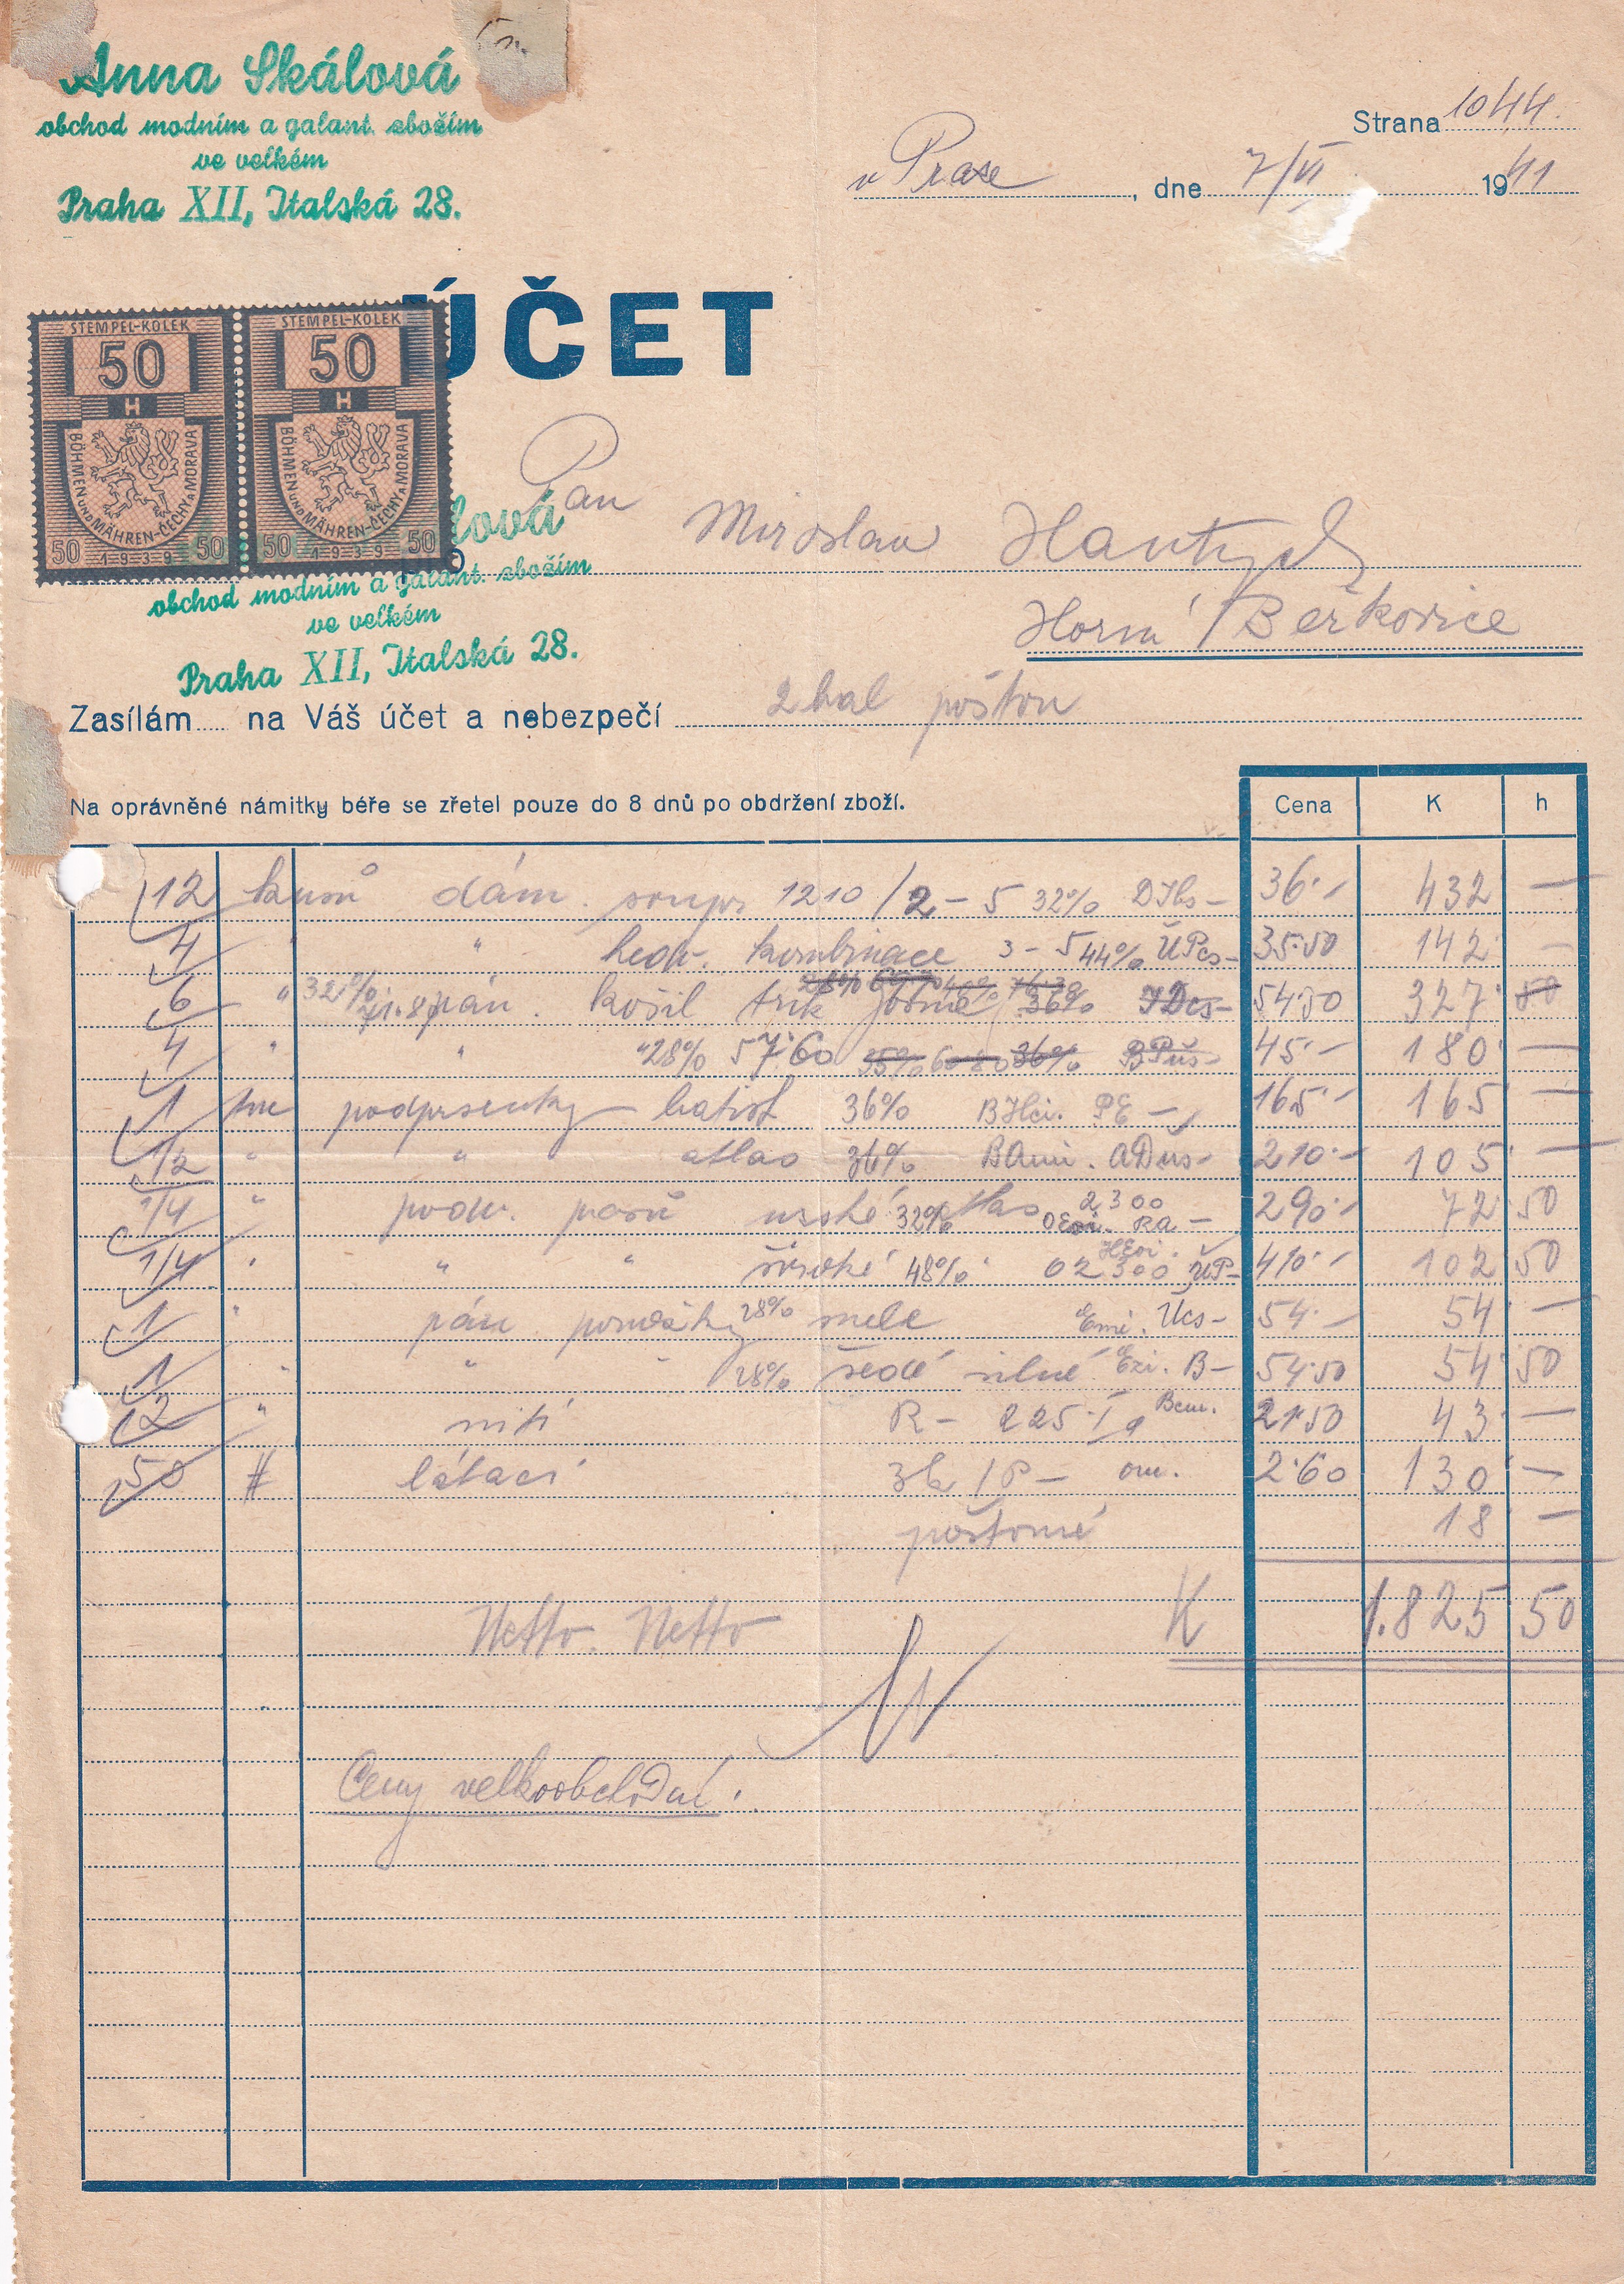 Anna Skálová
obchod modním a galant. zbožím
ve velkém
Praha XII, Italská 28.
Strana 1044.
v Praze, dne 7/VI 1941
ÚČET
STEMPEL-KOLEK
50
H
BÖHMEN UND MÄHREN-ČECHY A MORAVA
50 1939 50
STEMPEL-KOLEK
50
H
BÖHMEN UND MÄHREN-ČECHY A MORAVA
50 1939 50
Pan
Miroslav
Horní Beřkovice
lová
obchod modním a galant. zbožím
ve velkém
Praha XII, Italská 28.
Zasílám na Váš účet a nebezpečí 2 bal poštou
Na oprávněné námitky béře se zřetel pouze do 8 dnů po obdržení zboží.
Cena K h
12 kusů dám. soupr 1210/2-5 32% 36.- 432 -
4 " " hedv. kombinace 3-5 44% 35.50 142 -
6 " 32% 71.80 pán. košil trik 36% 54.50 327 50
4 " " " 28% 57.60 36% 45.- 180 -
1 podprsenky batist 36% PE - 165.- 165 -
1/2 " " atlas 36% 210.- 105 -
1/4 " podv. pasů úzké 32% atlas 2300 RA - 290.- 72 50
1/4 " " " široké 48% 02300 ÚP- 410.- 102 50
1 " pán ponožky 28% 54.- 54 -
1 " " " 28% šedé silné B- 54.50 54 50
2 " nití R- 225 21.50 43 -
50 # látací 2.60 130 -
poštovné 18 -
Netto. Netto K 1.825 50
Ceny velkoobchodní.